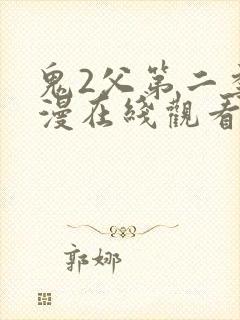 鬼2父第二季
漫在綫觀看
郭娜